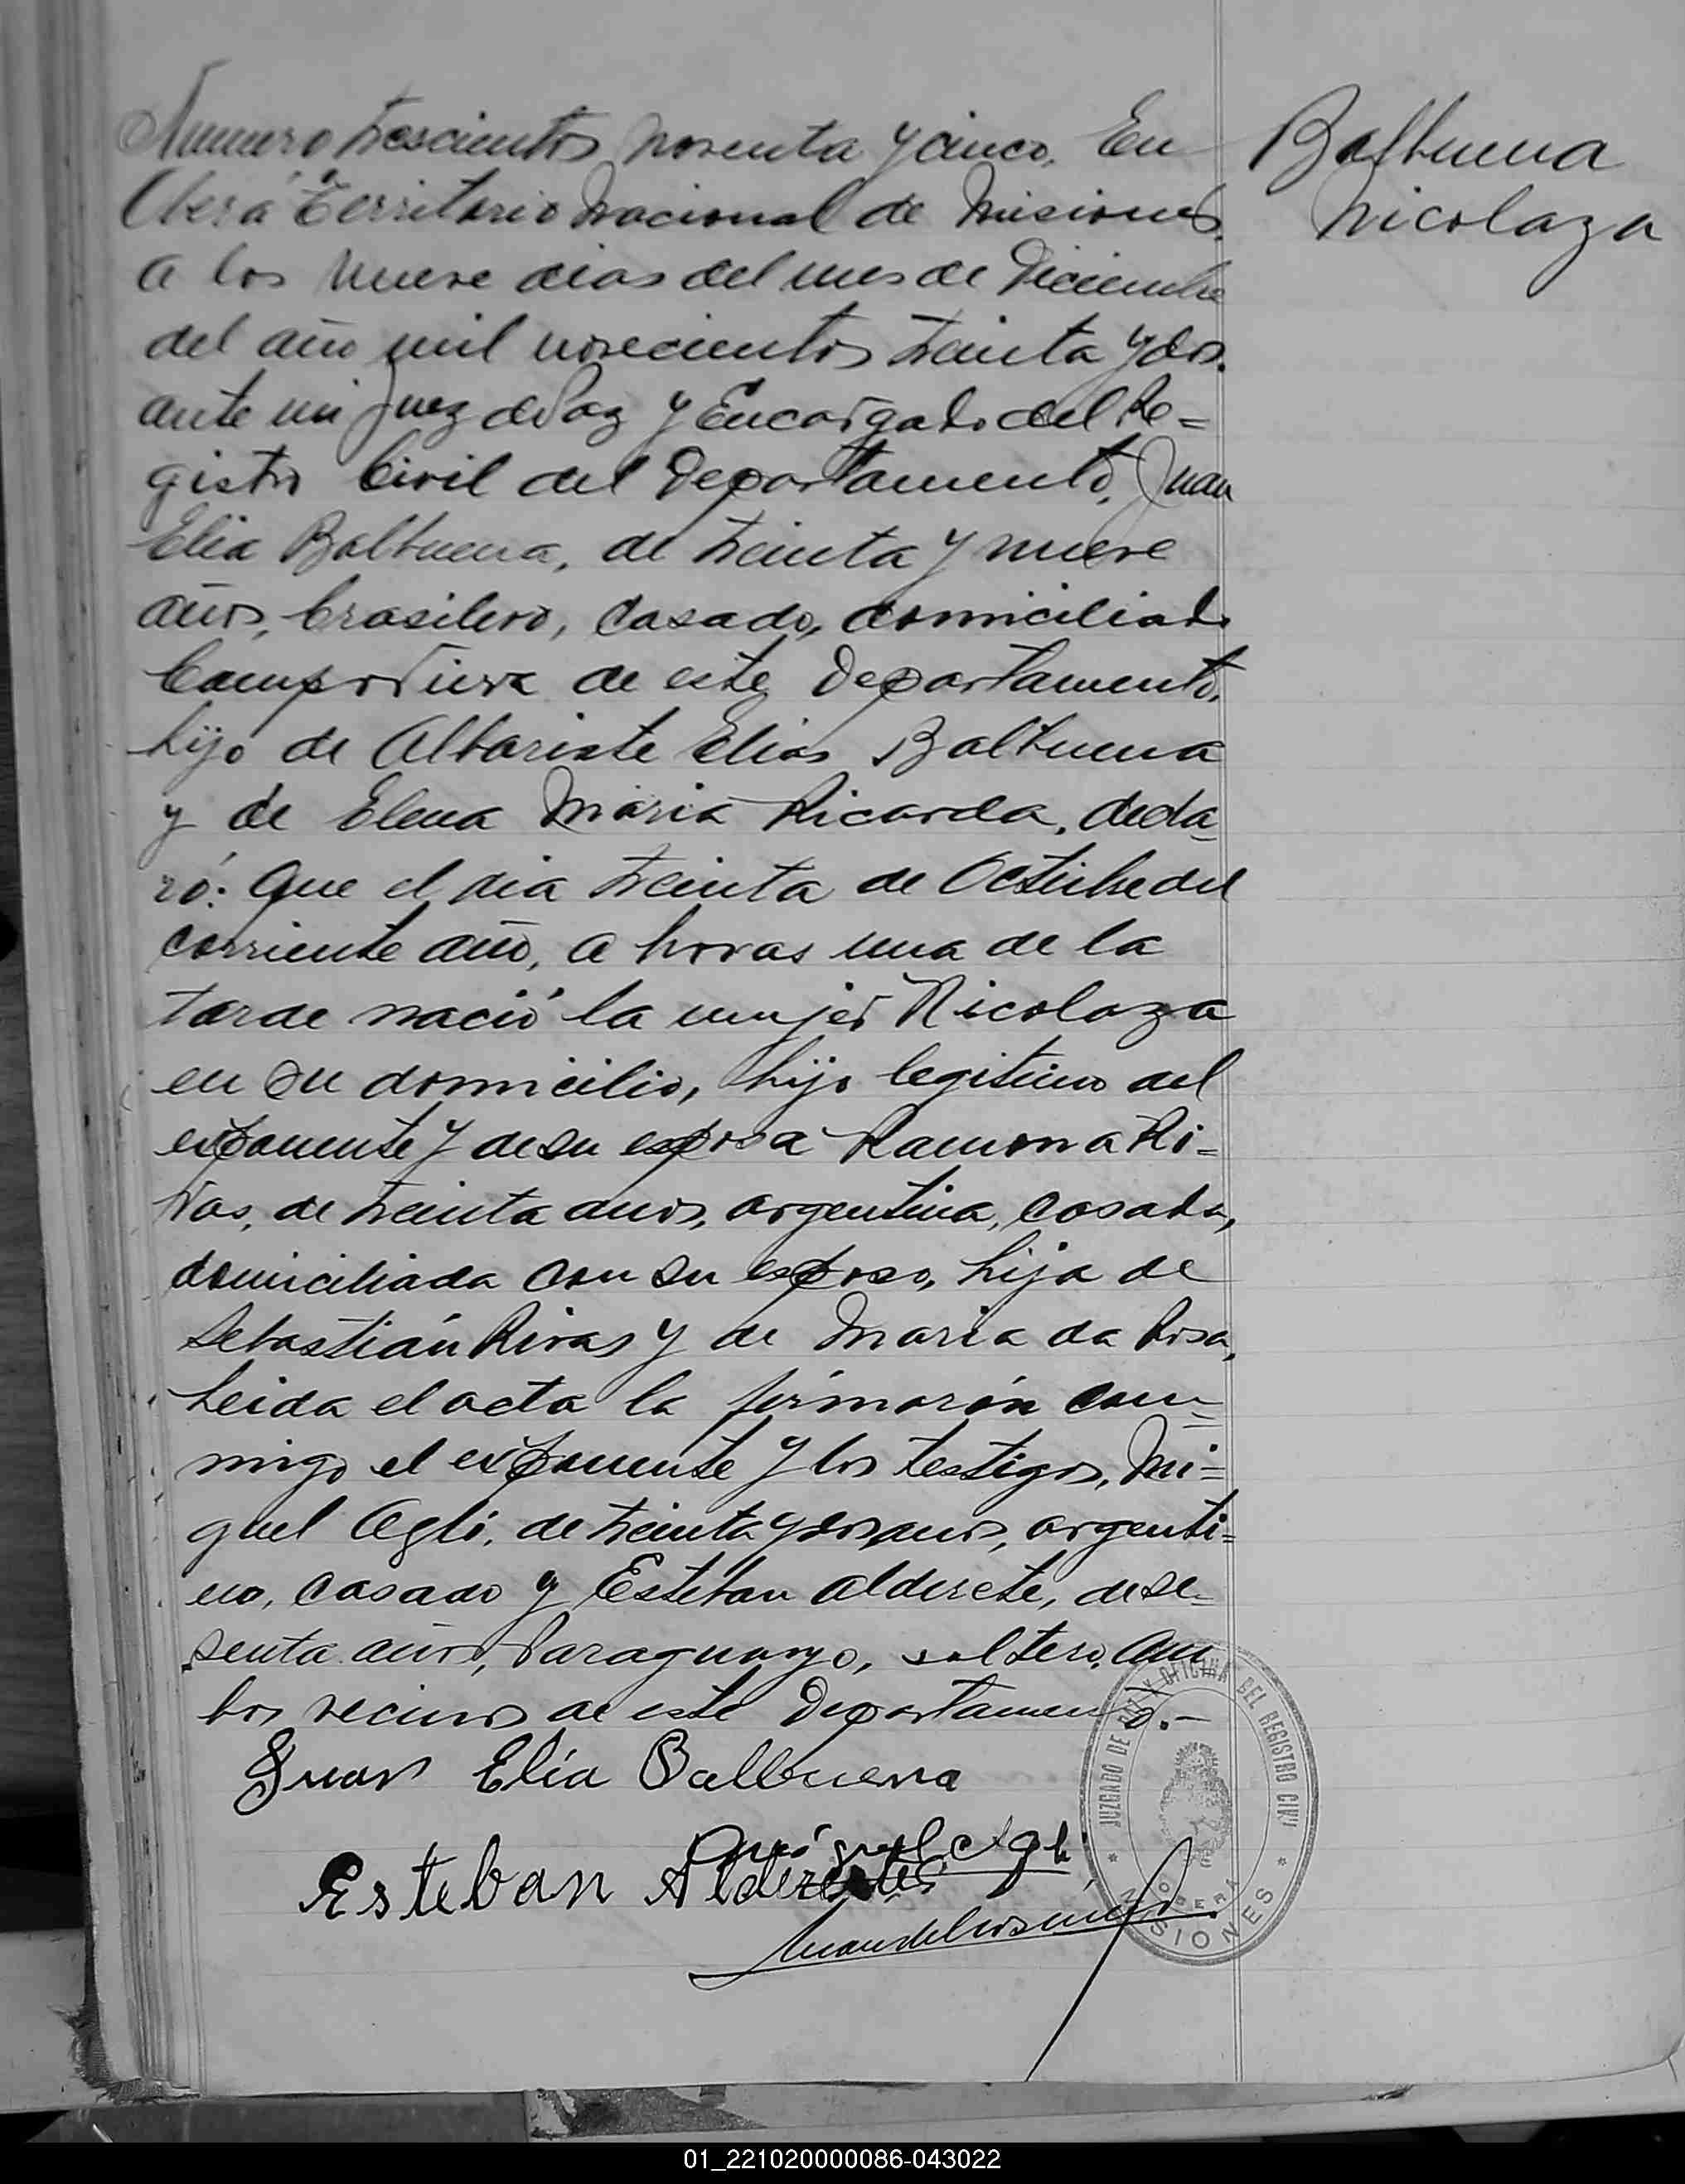 Numero trescientos noventa y cinco. En
Obera Territorio Nacional de Misiones.
a los nueve dias del mes de Diciembre
del año mil novecientos treinta y dos.
ante mi Juez de Paz y Encargado del Re=
gistro Civil del Departamento, Juan
Elia Balbuena, de treinta y nueve
años, brasilero, casado, domiciliado
Campo Viera de este Departamento,
hijo de Albariste Elias Balbuena
y de Elena Maria Ricarda, decla
ró: Que el dia treinta de Octubre del
corriente año, a horas una de la
tarde nació la mujer Nicolaza
en su domicilio, hijo legitimo del
exponente y de su esposa Ramona Ri=
vas, de treinta años, argentina, casada,
domiciliada con su esposo, hija de
Sebastián Rivas y de Maria da Rosa,
Leida el acta la firmarón con=
migo el exponente y los testigos, Mi=
guel Agli, de treinta y dos años, argenti=
no, casado y Esteban Alderete, de se=
senta años, Paraguayo, soltero, am
bos vecinos de este Departamento.-
Juan Elia Balbuena
Miguel Agli
Esteban Alderete
Balbuena
Nicolaza
JUZGADO DE PAZ Y OFICINA DEL REGISTRO CIVIL
OBERA
MISIONES
01_221020000086-043022